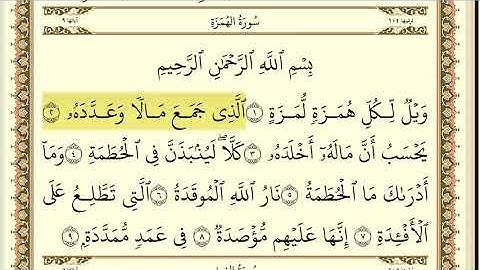 سُورَةُ الْهُمَزَةِ
بِسْمِ ٱللَّهِ ٱلرَّحْمَٰنِ ٱلرَّحِيمِ
وَيْلٌ لِّكُلِّ هُمَزَةٍ لُّمَزَةٍ ١ ٱلَّذِى جَمَعَ مَالًا وَعَدَّدَهُۥ ٢
يَحْسَبُ أَنَّ مَالَهُۥٓ أَخْلَدَهُۥ ٣ كَلَّا ۖ لَيُنۢبَذَنَّ فِى ٱلْحُطَمَةِ ٤ وَمَآ
أَدْرَىٰكَ مَا ٱلْحُطَمَةُ ٥ نَارُ ٱللَّهِ ٱلْمُوقَدَةُ ٦ ٱلَّتِى تَطَّلِعُ عَلَى
ٱلْأَفْـِٔدَةِ ٧ إِنَّهَا عَلَيْهِم مُّؤْصَدَةٌ ٨ فِى عَمَدٍ مُّمَدَّدَةٍۭ ٩